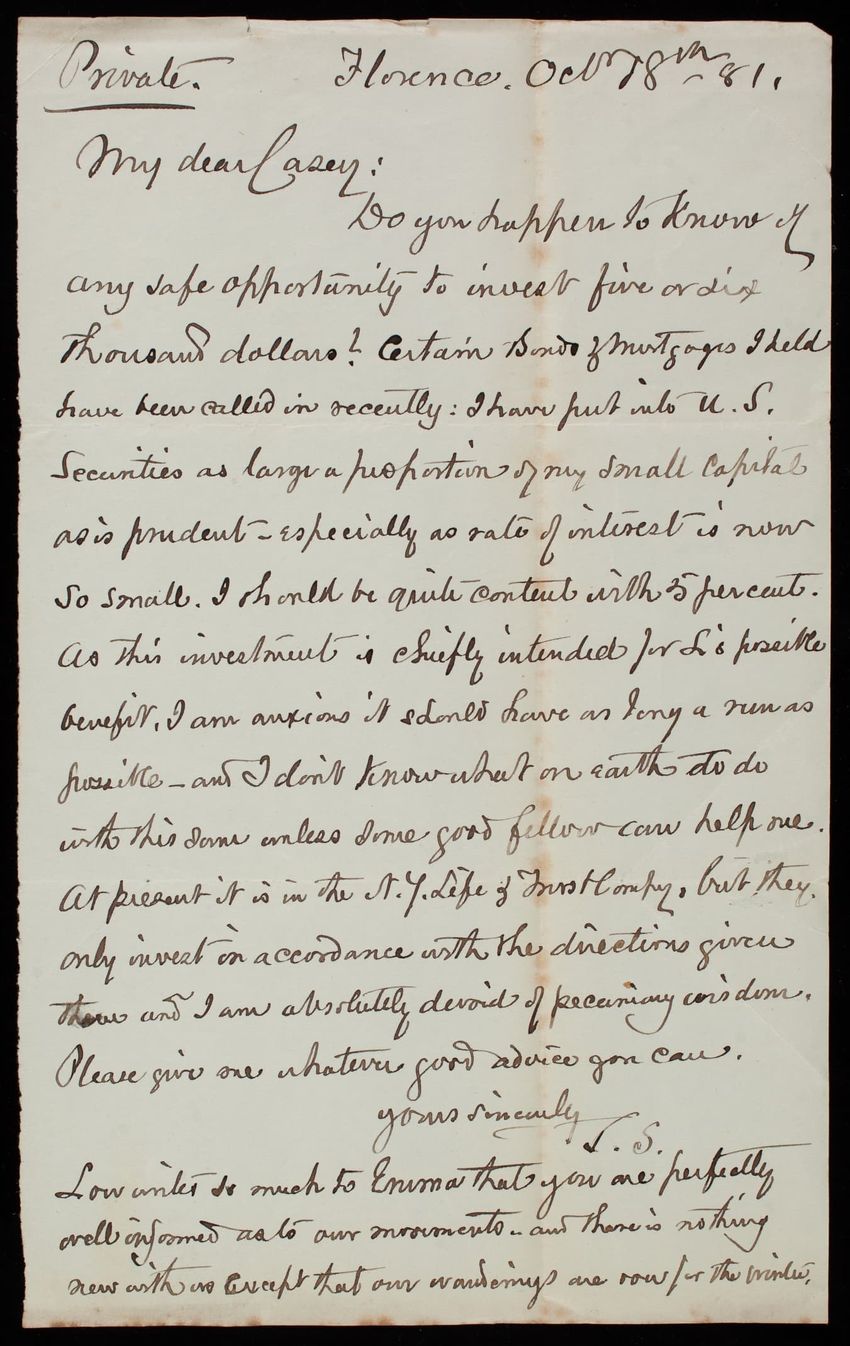 Private. Florence. Octr 18th - 81.
My dear Casey:
Do you happen to know of
any safe opportunity to invest five or six
thousand dollars? Certain Bonds & Mortgages I held
have been called in recently: I have put into U. S.
Securities as large a proportion of my small capital
as is prudent - especially as rate of interest is now
so small. I should be quite content with 5 per cent.
As this investment is chiefly intended for L's possible
benefit, I am anxious it should have as long a run as
possible - and I don't know what on earth to do
with this sum unless some good fellow can help me.
At present it is in the N. Y. Life & Trust Compy, but they
only invest in accordance with the directions given
them and I am absolutely devoid of pecuniary wisdom.
Please give me whatever good advice you can.
yours sincerely
S.
Lou writes so much to Emma that you are perfectly
well informed as to our movements - and there is nothing
new with us except that our wanderings are over for the winter.